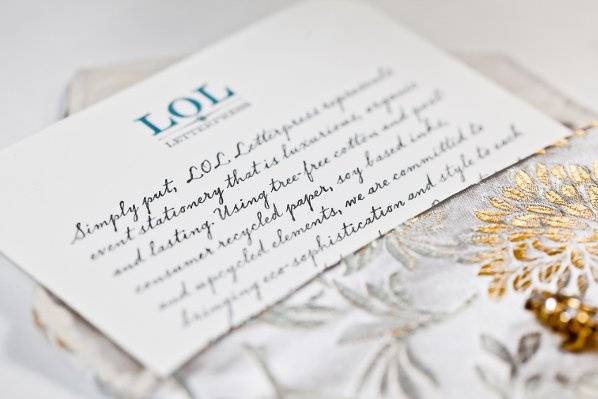 LOL
LETTERPRESS
Simply put, LOL Letterpress represents
event stationery that is luxurious, organic
and lasting. Using tree-free cotton and post
consumer recycled paper, soy based inks,
and upcycled elements, we are committed to
bringing eco-sophistication and style to each